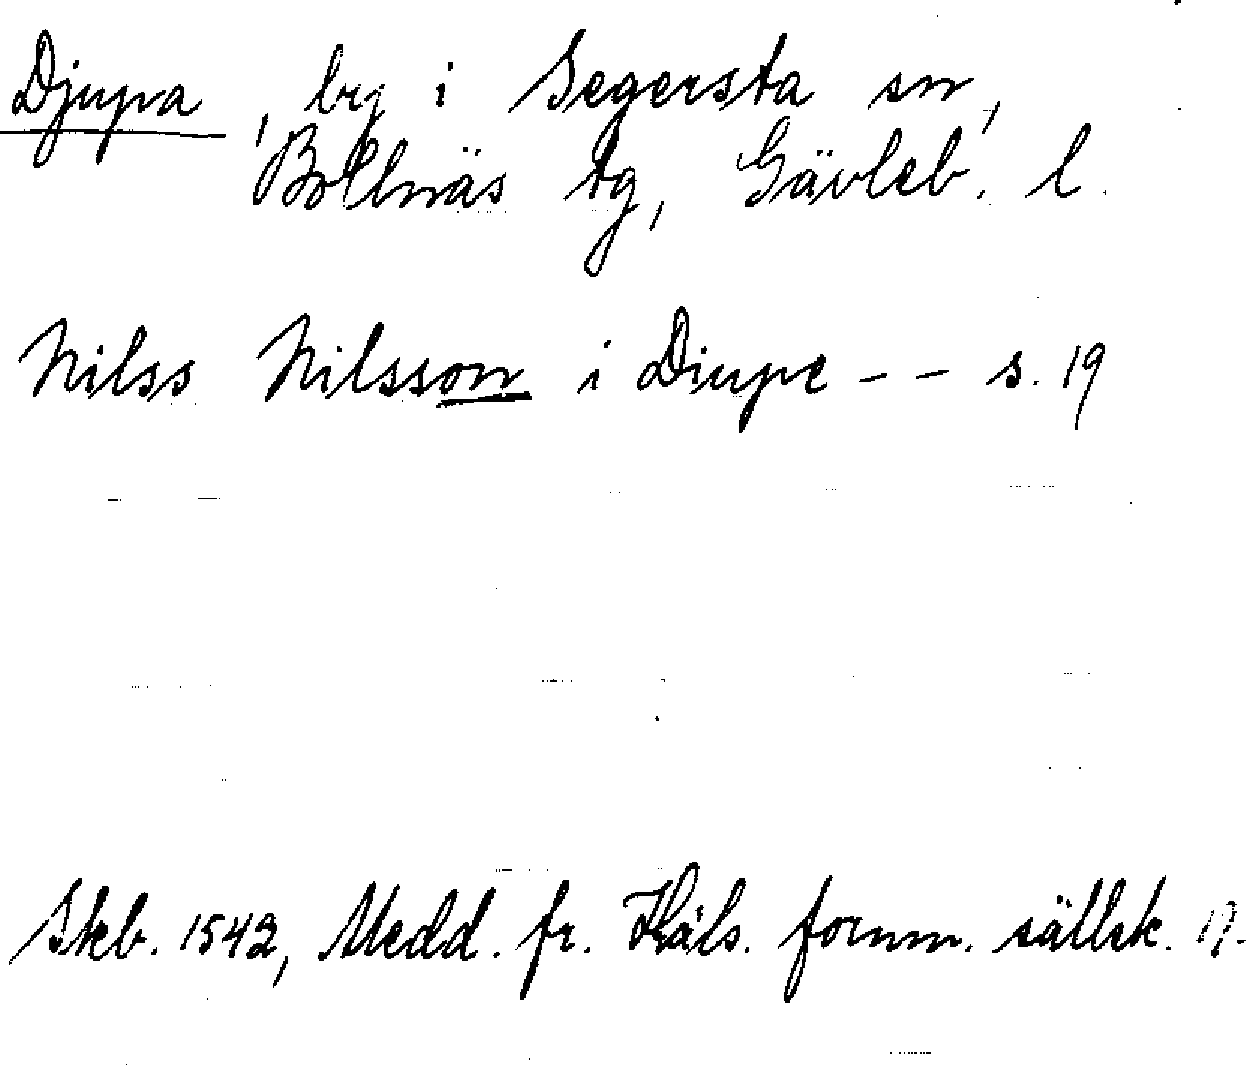 Djupa, by i Segersta sn,
Bollnäs tg, Gävleb. l.
Nilss Nilsson i Diupe -- s. 19
Skb. 1542, Medd. fr. Häls. fornm. sällsk.